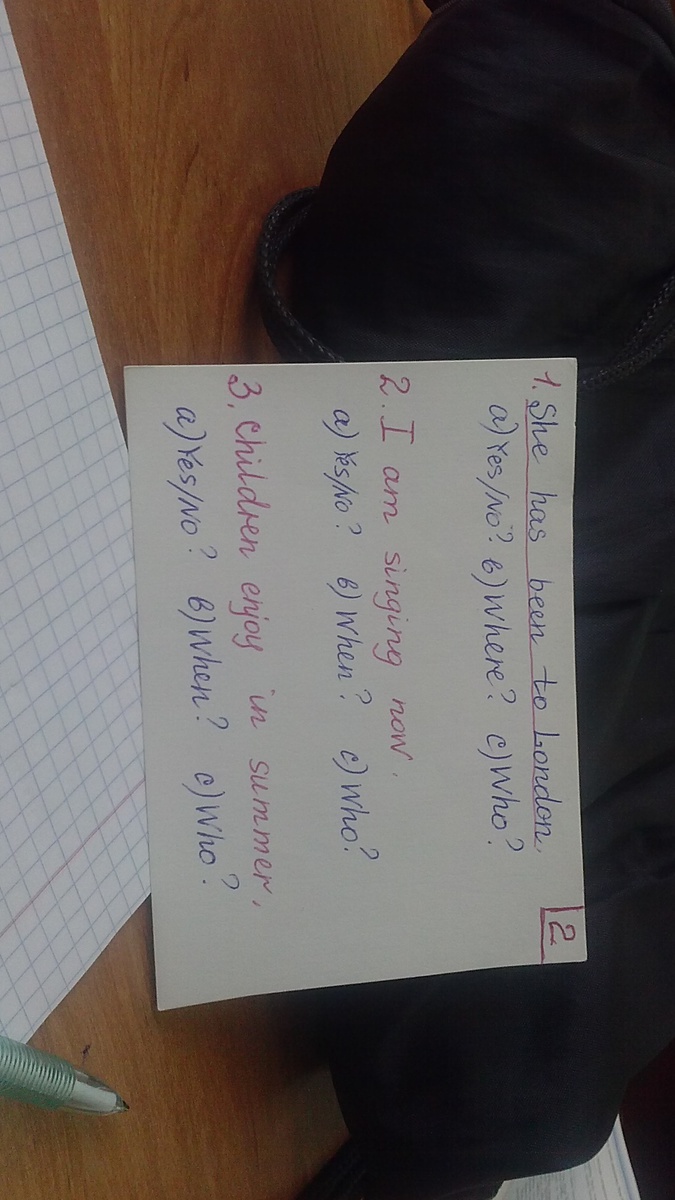 2
1. She has been to London.
a) Yes/No? b) Where? c) Who?
2. I am singing now.
a) Yes/No? b) When? c) Who?
3. Children enjoy in summer.
a) Yes/No? b) When? c) Who?